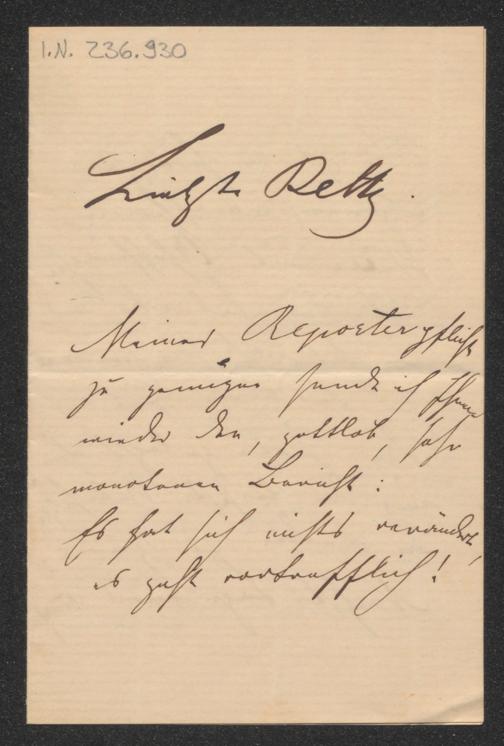 I.N. 236.930
Liebste Betty.
Meiner Reporterpflicht
zu genügen sende ich Ihnen
wieder den, gottlob, sehr
monotonen Bericht:
Es hat sich nichts verändert,
es geht vortrefflich!